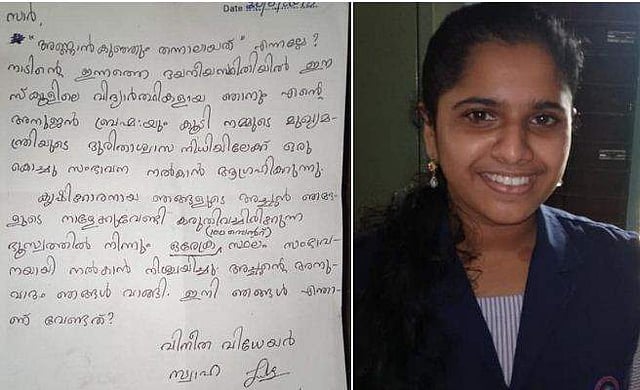 Date
സാർ,
"അണ്ണാൻ കുഞ്ഞും തന്നാലായത്" എന്നല്ലേ?
നാടിന്റെ ഇന്നത്തെ ദയനീയസ്ഥിതിയിൽ ഈ
സ്കൂളിലെ വിദ്യാർത്ഥികളായ ഞാനും എന്റെ
അനുജൻ ബ്രഹ്മയും കൂടി നമ്മുടെ മുഖ്യമ-
ന്ത്രിയുടെ ദുരിതാശ്വാസ നിധിയിലേക്ക് ഒരു
കൊച്ചു സംഭാവന നൽകാൻ ആഗ്രഹിക്കുന്നു.
കൃഷിക്കാരനായ ഞങ്ങളുടെ അച്ഛൻ ഞങ്ങ-
ളുടെ നാളേക്കുവേണ്ടി കരുതിവച്ചിരിക്കുന്ന
ഭൂസ്വത്തിൽ നിന്നും ഒരേക്കർ സ്ഥലം സംഭാവ-
(100 സെന്റ്)
നയായി നൽകാൻ നിശ്ചയിച്ചു. അച്ഛന്റെ അനു-
വാദം ഞങ്ങൾ വാങ്ങി. ഇനി ഞങ്ങൾ എന്താ-
ണ് വേണ്ടത്?
വിനീത വിധേയർ
സ്വാഹ